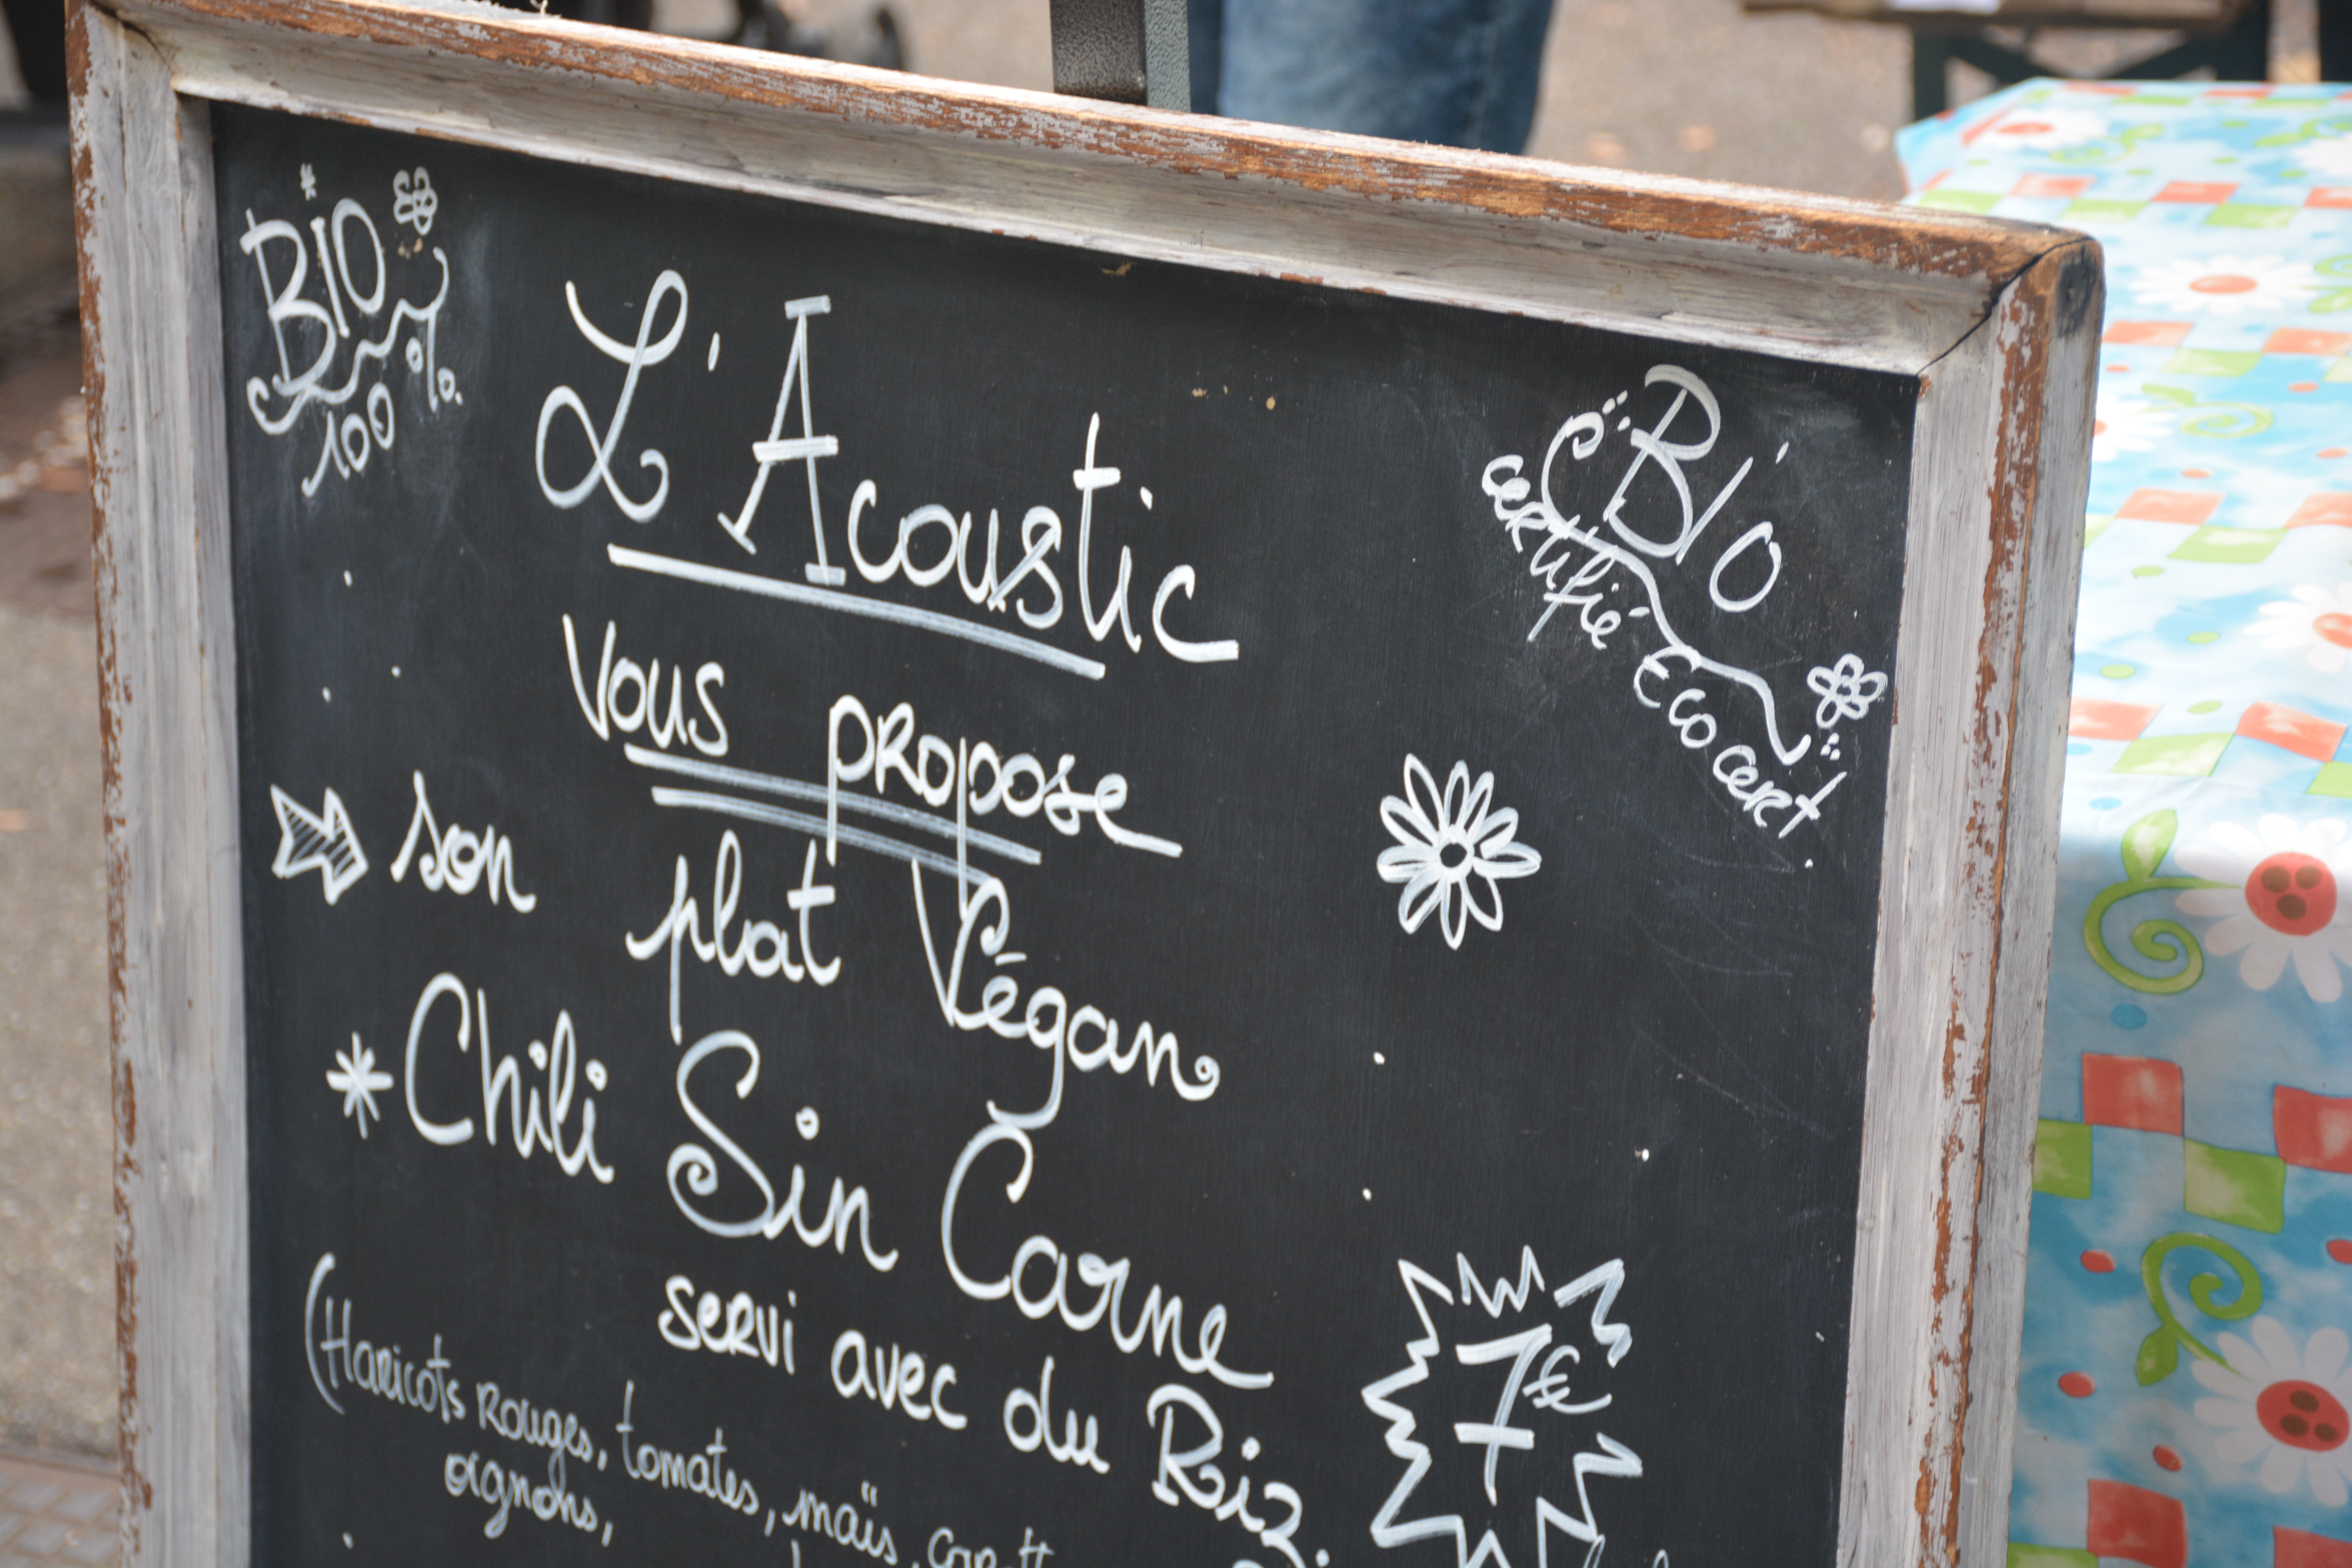 BIO
100 %
L'Acoustic
Bio
certifié Ecocert
Vous propose
son plat Végan
* Chili Sin Carne
servi avec du Riz
7€
(Haricots Rouges, tomates, maïs,
oignons,